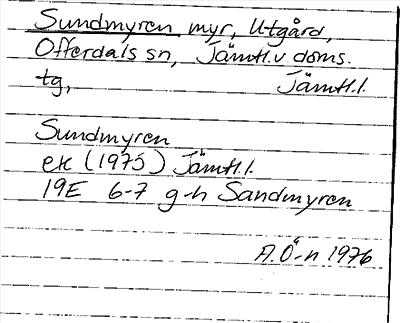 Sundmyren myr, Utgård,
Offerdals sn, Jämtl.v doms.
tg, Jämtl.l.
Sundmyren
ek (1975) Jämtl.l.
19E 6-7 g-h Sandmyren
A.Ö-n 1976